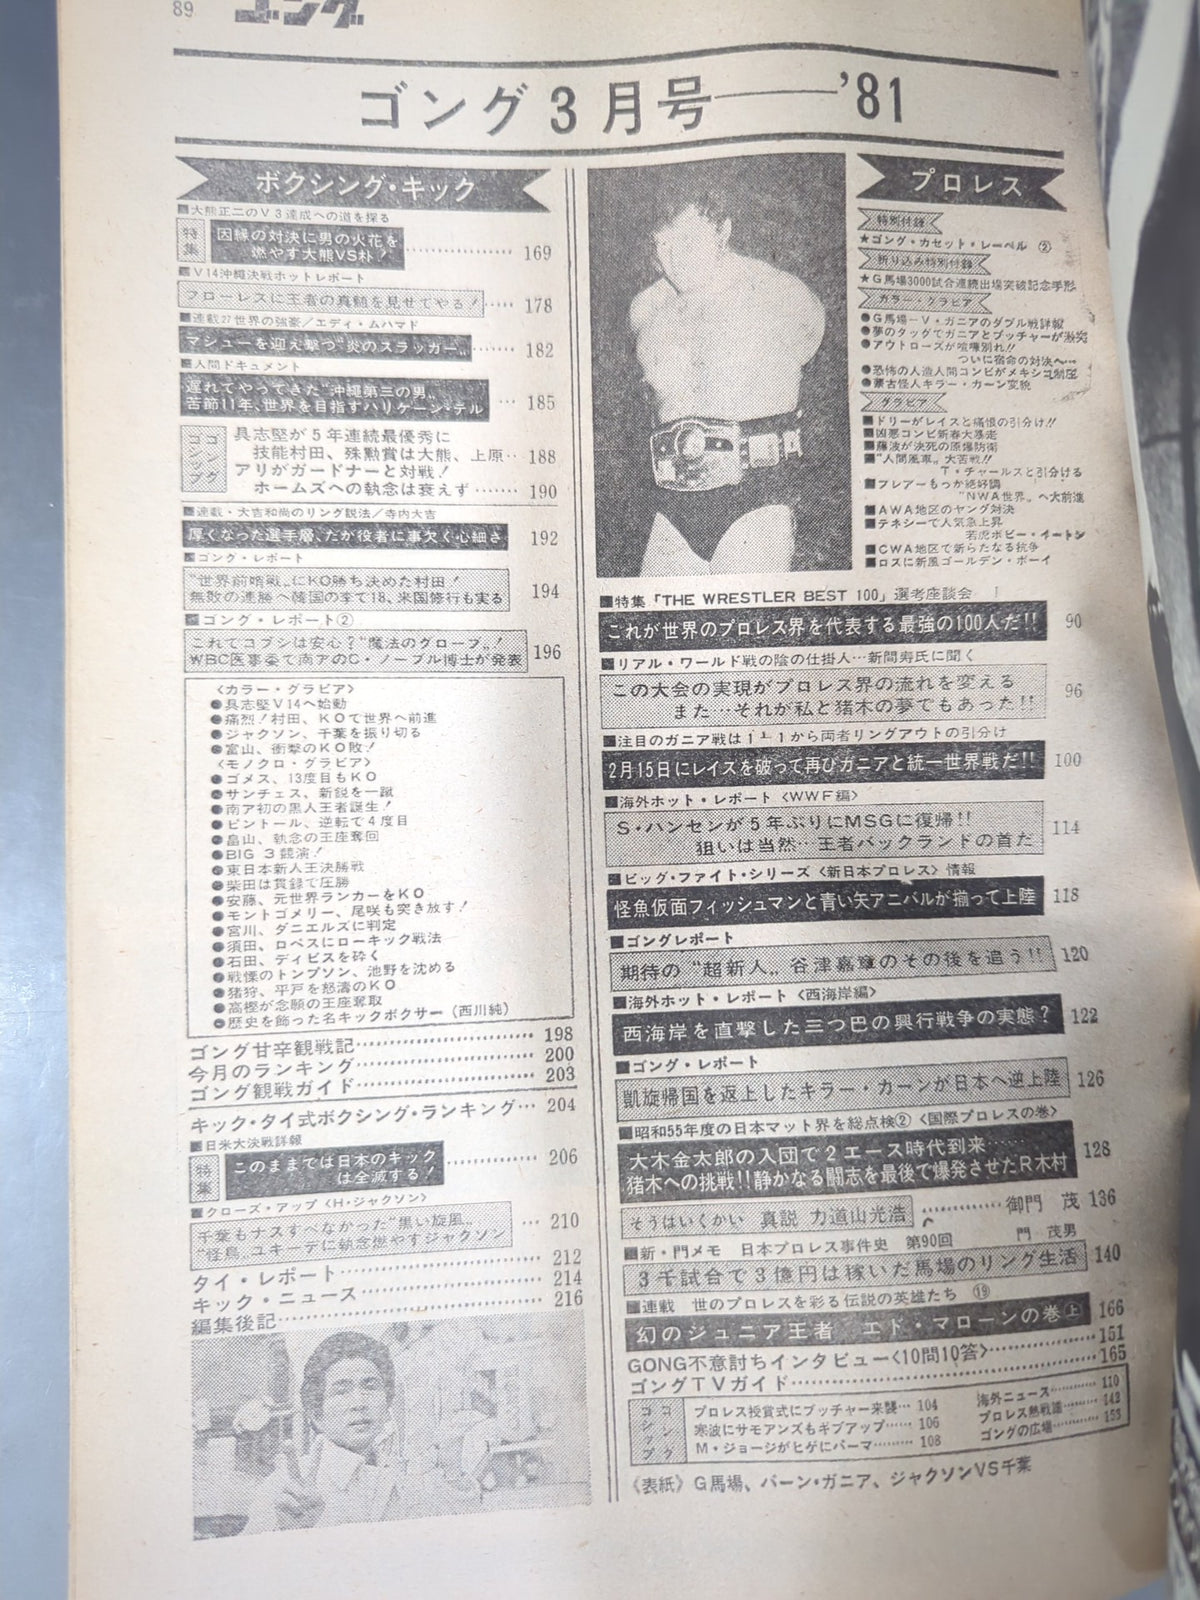 89
ゴング
ゴング3月号――'81
ボクシング・キック
■大熊正二のV3達成への道を探る
特集
因縁の対決に男の火花を
燃やす大熊VS朴! 169
■V14沖縄決戦ホットレポート
フローレスに王者の真髄を見せてやる! 178
■連載27世界の強豪/エディ・ムハマド
マシューを迎え撃つ“炎のスラッガー„ 182
■人間ドキュメント
遅れてやってきた“沖縄第三の男„
苦節11年、世界を目指すハリケーン・テル 185
ゴングゴシップ
具志堅が5年連続最優秀に
技能村田、殊勲賞は大熊、上原 188
アリがガードナーと対戦!
ホームズへの執念は衰えず 190
■連載・大吉和尚のリング説法/寺内大吉
厚くなった選手層、だが役者に事欠く心細さ 192
■ゴング・レポート
“世界前哨戦„にKO勝ち決めた村田!
無敗の連勝へ韓国の李で18、米国修行も実る 194
■ゴング・レポート②
これでコブシは安心?“魔法のグローブ„!
WBC医事委で南アのC・ノーブル博士が発表 196
〈カラー・グラビア〉
●具志堅V14へ始動
●痛烈!村田、KOで世界へ前進
●ジャクソン、千葉を振り切る
●富山、衝撃のKO敗!
〈モノクロ・グラビア〉
●ゴメス、13度目もKO
●サンチェス、新鋭を一蹴
●南ア初の黒人王者誕生!
●ピントール、逆転で4度目
●畠山、執念の王座奪回
●BIG 3競演!
●東日本新人王決勝戦
●柴田は貫録で圧勝
●安藤、元世界ランカーをKO
●モントゴメリー、尾咲も突き放す!
●宮川、ダニエルズに判定
●須田、ロペスにローキック戦法
●石田、デイビスを砕く
●戦慄のトンプソン、池野を沈める
●猪狩、平戸を怒濤のKO
●高樫が念願の王座奪取
●歴史を飾った名キックボクサー(西川純)
ゴング甘辛観戦記 198
今月のランキング 200
ゴング観戦ガイド 203
キック・タイ式ボクシング・ランキング 204
■日米大決戦詳報
特集
このままでは日本のキック
は全滅する! 206
■クローズ・アップ〈H・ジャクソン〉
千葉もナスすべなかった“黒い旋風„
“怪鳥„ユキーデに執念燃やすジャクソン 210
タイ・レポート 212
キック・ニュース 214
編集後記 216
プロレス
特別付録
★ゴング・カセット・レーベル ②
折り込み特別付録
★G馬場3000試合連続出場突破記念手形
カラー・グラビア
●G馬場―V・ガニアのダブル戦詳報
●夢のタッグでガニアとブッチャーが激突
●アウトローズが喧嘩別れ!!
ついに宿命の対決へ…
●恐怖の人造人間コンビがメキシコ制圧
●蒙古怪人キラー・カーン変貌
グラビア
■ドリーがレイスと痛恨の引分け!!
■凶悪コンビ新春大暴走
■藤波が決死の原爆防衛
■“人間風車„大苦戦!!
T・チャールスと引分ける
■フレアーもっか絶好調
“NWA世界„へ大前進
■AWA地区のヤング対決
■テネシーで人気急上昇
若虎ボビー・イートン
■CWA地区で新らたなる抗争
■ロスに新風ゴールデン・ボーイ
■特集「THE WRESTLER BEST 100」選考座談会
これが世界のプロレス界を代表する最強の100人だ!! 90
■リアル・ワールド戦の陰の仕掛人…新間寿氏に聞く
この大会の実現がプロレス界の流れを変える
また…それが私と猪木の夢でもあった!! 96
■注目のガニア戦は1―1から両者リングアウトの引分け
2月15日にレイスを破って再びガニアと統一世界戦だ!! 100
■海外ホット・レポート〈WWF編〉
S・ハンセンが5年ぶりにMSGに復帰!!
狙いは当然…王者バックランドの首だ 114
■ビッグ・ファイト・シリーズ〈新日本プロレス〉情報
怪魚仮面フィッシュマンと青い矢アニバルが揃って上陸 118
■ゴングレポート
期待の“超新人„谷津嘉章のその後を追う!! 120
■海外ホット・レポート〈西海岸編〉
西海岸を直撃した三つ巴の興行戦争の実態? 122
■ゴング・レポート
凱旋帰国を返上したキラー・カーンが日本へ逆上陸 126
■昭和55年度の日本マット界を総点検②〈国際プロレスの巻〉
大木金太郎の入団で2エース時代到来……
猪木への挑戦!!静かなる闘志を最後で爆発させたR木村 128
そうはいくかい 真説 力道山光浩 御門 茂 136
■新・門メモ 日本プロレス事件史 第90回 門 茂男
3千試合で3億円は稼いだ馬場のリング生活 140
■連載 世のプロレスを彩る伝説の英雄たち ⑲
幻のジュニア王者 エド・マローンの巻㊤ 166
GONG不意討ちインタビュー〈10問10答〉 151
ゴングTVガイド 165
プロレス授賞式にブッチャー来襲 104
寒波にサモアンズもギブアップ 106
M・ジョージがヒゲにパーマ 108
海外ニュース 110
プロレス熱戦譜 142
ゴングの広場 153
《表紙》G馬場、バーン・ガニア、ジャクソンVS千葉